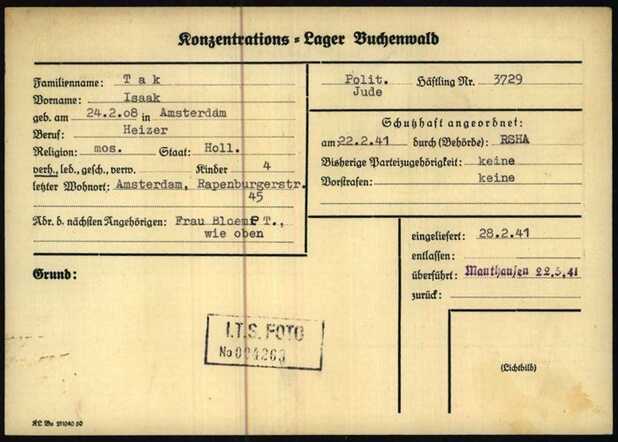 Konzentrations = Lager Buchenwald
Familienname: Tak
Vorname: Isaak
geb. am 24.2.08 in Amsterdam
Beruf: Heizer
Religion: mos. Staat: Holl.
verh., led., gesch., verw. Kinder 4
letzter Wohnort: Amsterdam, Rapenburgerstr.
45
Adr. d. nächsten Angehörigen: Frau T.,
wie oben
Grund:
Polit. Häftling Nr. 3729
Jude
Schutzhaft angeordnet:
am: 22.2.41 durch (Behörde): RSHA
Bisherige Parteizugehörigkeit: keine
Vorstrafen: keine
eingeliefert: 28.2.41
entlassen:
überführt: Mauthausen 22.5.41
zurück:
(Lichtbild)
I.T.S. FOTO
No 024263
KL Bu